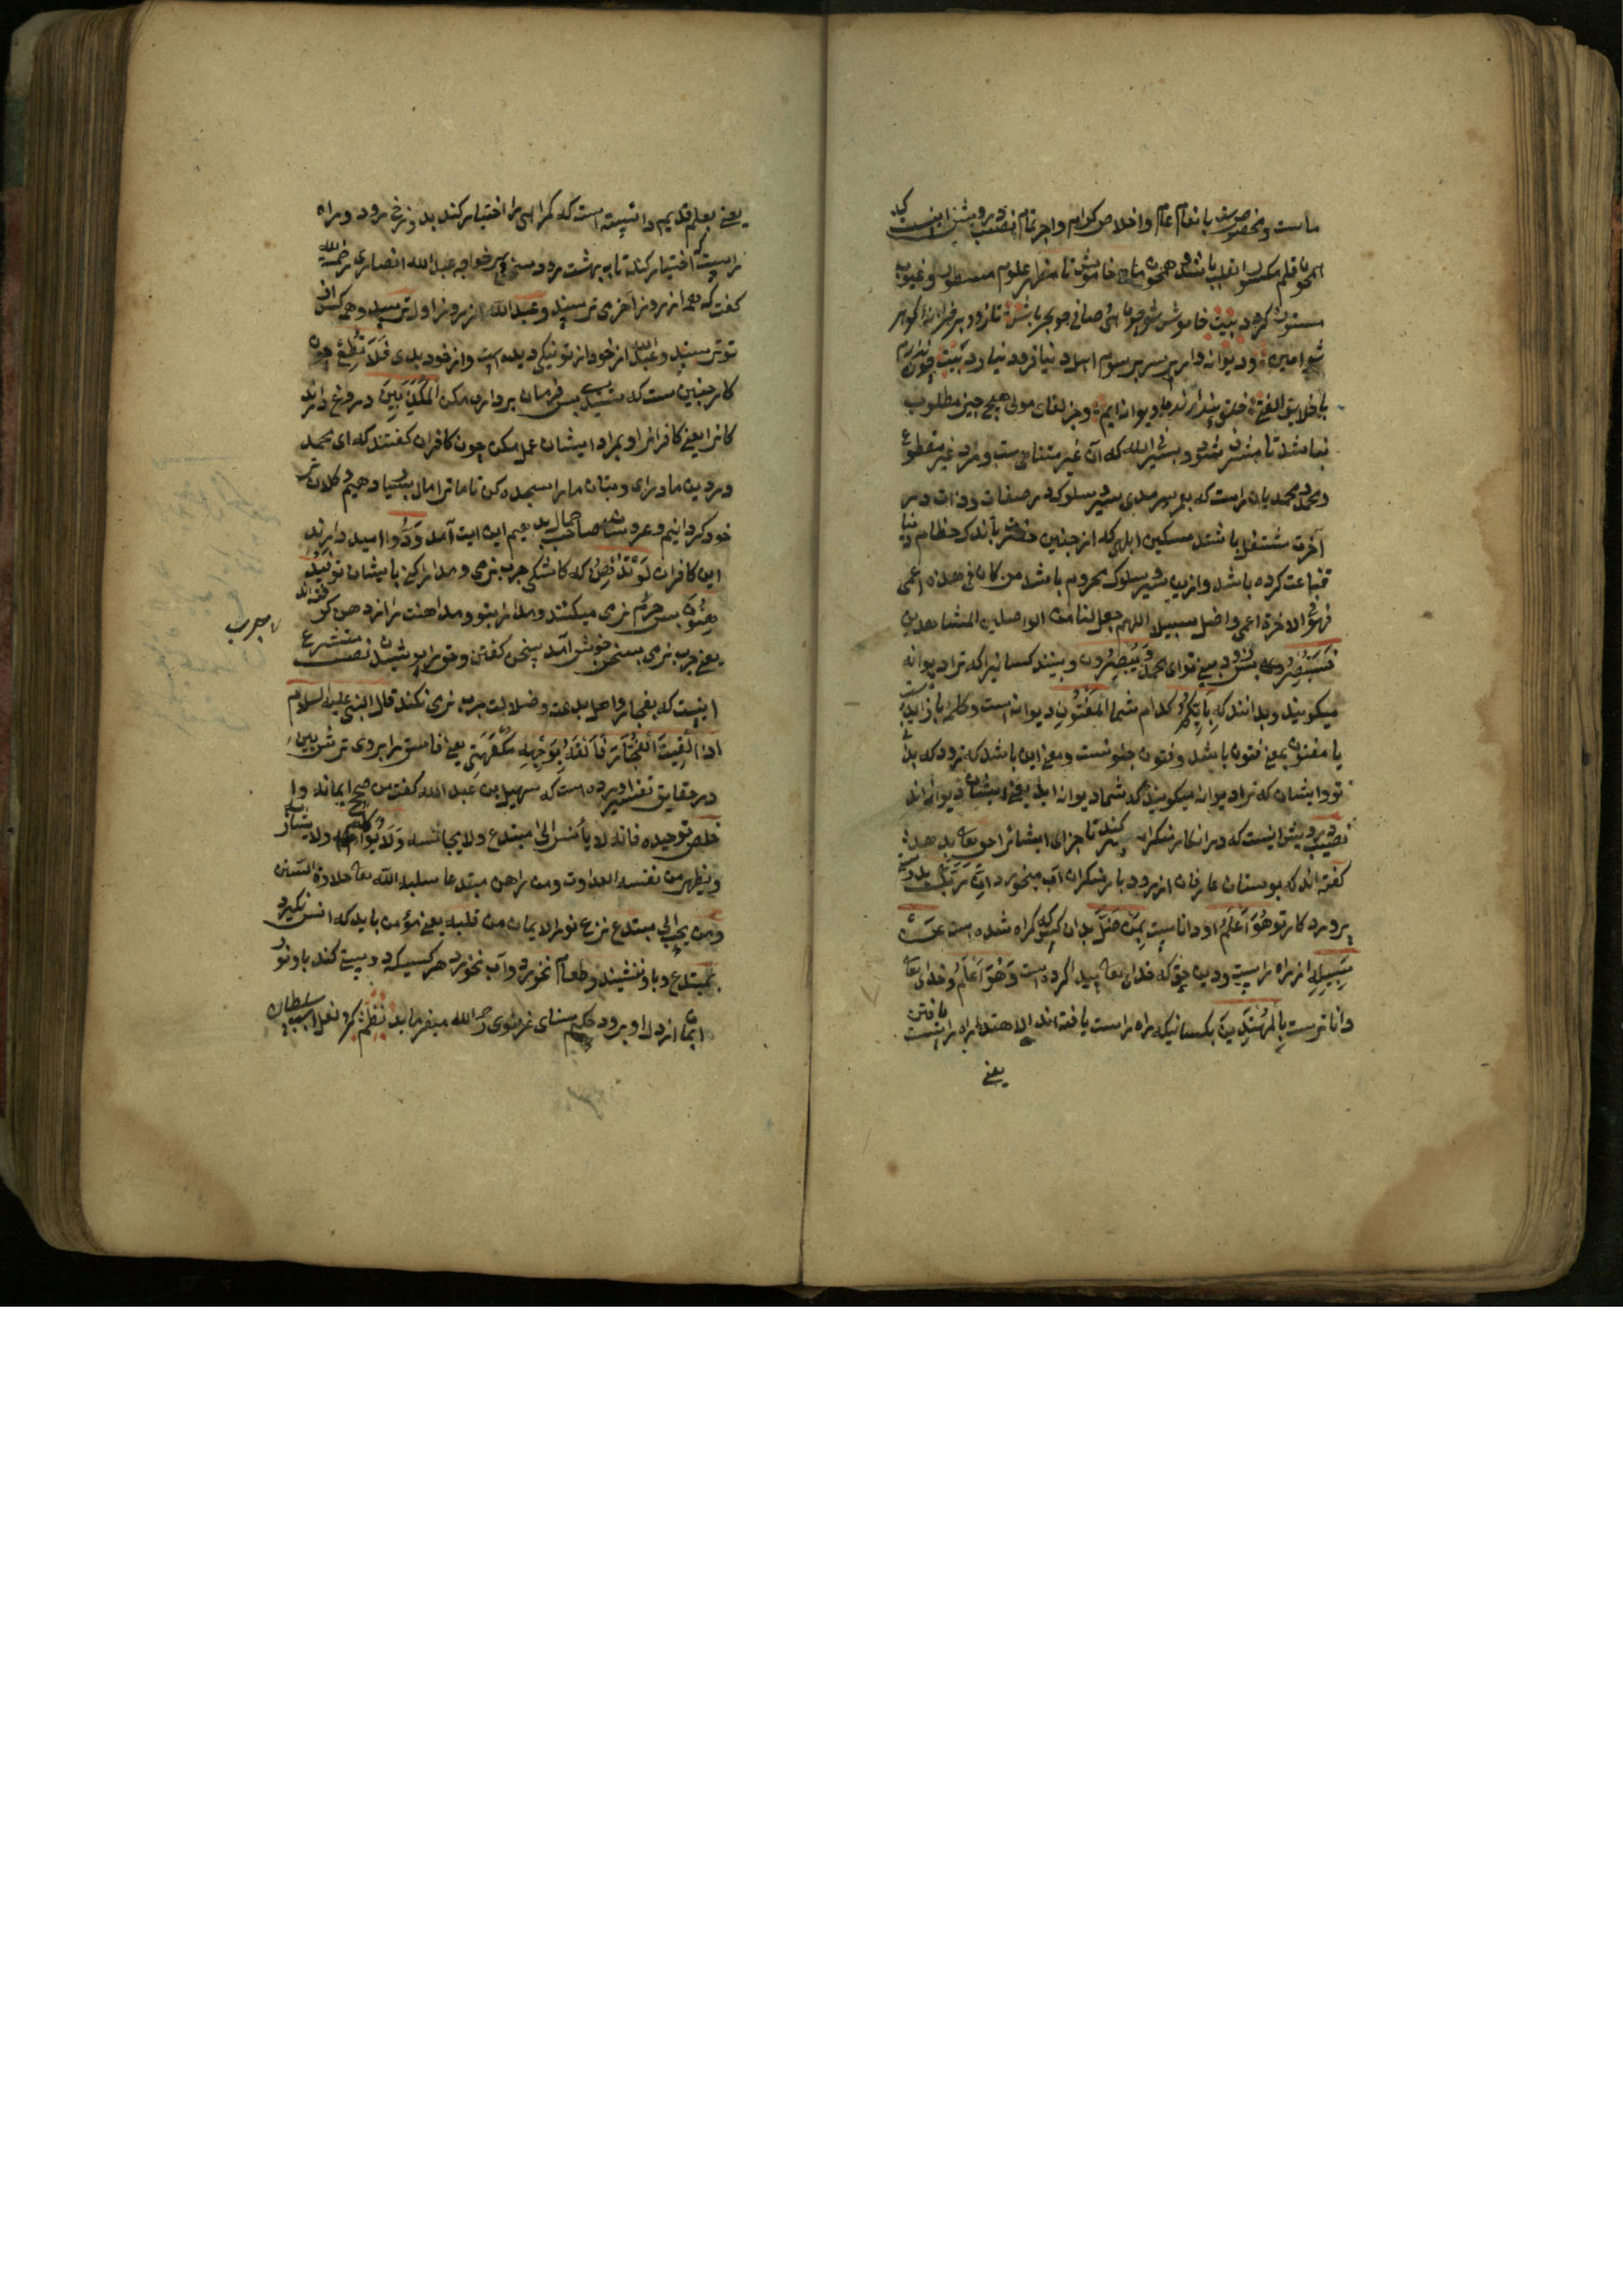 ماست و مخصوص بانعام عام و اخلاص کرام و اجر تمام نصیب درویش اینست که
همچون قلم مکسور القلب باشد و همچون ماهی خاموش تا مظهر علوم مسطور و غیوب
مستور گردد بیت خاموش شو چون صافی چو بحر باش تا زود بر خزینه گوهر
شو امین زود دیوانه وار بر سر رسوم دنیا زود بیت چون ندارم
با خلایق الفتی خلق پندارند ما دیوانه ایم و جز لقای مولی هیچ چیز مطلوب
نباشد تا مشرف شود و بسیر فی الله که آن غیر متناهی ست و مزد غیر مقطوع
و محمد محمدیان راست که بعمر سرمدی بسیر سلوک در صفات و ذات در
آخرت مشتغل باشند مسکین ابلهی که از چنین باندک حطام دنیا
قناعت کرده باشد و ازین سیر سلوک محروم باشد من کان فی هذه اعمی
فهو فی الاخرة اعمی و اضل سبیلا اللهم اجعل لنا من الواصلین المشاهدین
فستبصر پس زود ببینی تو ای محمد و یبصرون و ببینند کسانیرا که ترا دیوانه
میگویند و بدانند که بایکم کدام شما المفتون دیوانه است و کلمه با زایدست
یا مفتون بمعنی فتون باشد و فتون جنونست و معنی این باشد که زود که بدانی
تو و ایشان که ترا دیوانه میگویند که شما دیوانه اید یعنی ایشان دیوانه اند
نصیب درویش اینست که در انکار منکران صبر کند تا جزای ایشانرا حق تعالی بدهد
گفته اند که بوستان عارفان از رود بار منکران آب میخورد ان ربک بدرستی
پروردکار تو هو اعلم او داناست بمن ضل بدان کسی که گمراه شده است عن
سبیله از راه راست و دین حق که خدای تعالی پیدا کرده است و هو اعلم و خدای تعالی
داناترست بالمهتدین بکسانیکه راه راست یافته اند الاهتدا راه راست یافتن
یعنی
یعنی بعلم قدیم دانسته است که گمراهی را اختیار کند بدوزخ رود و راه
راست که اختیار کند تا به بهشت رود و شیخ پیر خواجه عبد الله انصاری رحمه الله
گفت که همه از روز آخر می ترسند و عبد الله از روز اول ترسد و همه کس از
تو ترسند و عبد الله از خود از تو نیکی دیده است و از خود بدی فلا تطع چون
کار چنین ست که شنیدی پس فرمان برداری مکن المکذبین دروغ دارند
کانرا یعنی کافرانرا و بمراد ایشان عمل مکن چون کافران گفتند که ای محمد
در دین ما درای و بتان ما را سجده کن تا ما ترا مال بسیار دهیم و کلان تر
خود گردانیم و عروسان صاحب جمال بدهیم این ایت آمد ودوا امید دارند
این کافران لو تدهن که کاشکی چرب نرمی و مدارا کنی بایشان تو فید
هنون پس هم نرمی میکنند و مدارا بتو و مداهنت را از دهن گرفته اند
یعنی چرب نرمی بسخن خوش آمد سخن گفتن و حق را پوشیدن نصیب متشرع
اینست که بفجار و اهل بدعت و ضلالت چرب نرمی نکند قال النبی علیه السلام
اذا لقیت الفجار فالقه بوجه مکفهر یعنی فاسق را بروی ترش بین
در حقایق تفسیر آورده است که سهیل بن عبد الله گفت من صح ایمانه و ا
خلص توحیده فانه لا یأنس الی مبتدع و لا یجالسه و لا یواکله و لا یشاربه
و یظهر من نفسه العداوت و من داهن مبتدعا سلبه الله تعالی حلاوة السنن
و من یحب الی مبتدع نزع نور الایمان من قلبه یعنی مؤمن باید که انس نگیرد
بمبتدع و با او ننشیند و طعام نخورد و آب نخورد هر کسیکه دوستی کند با او نور
ایمان از دل او برود حکیم سنای غزنوی رحمه الله میفرماید نظم
چرب